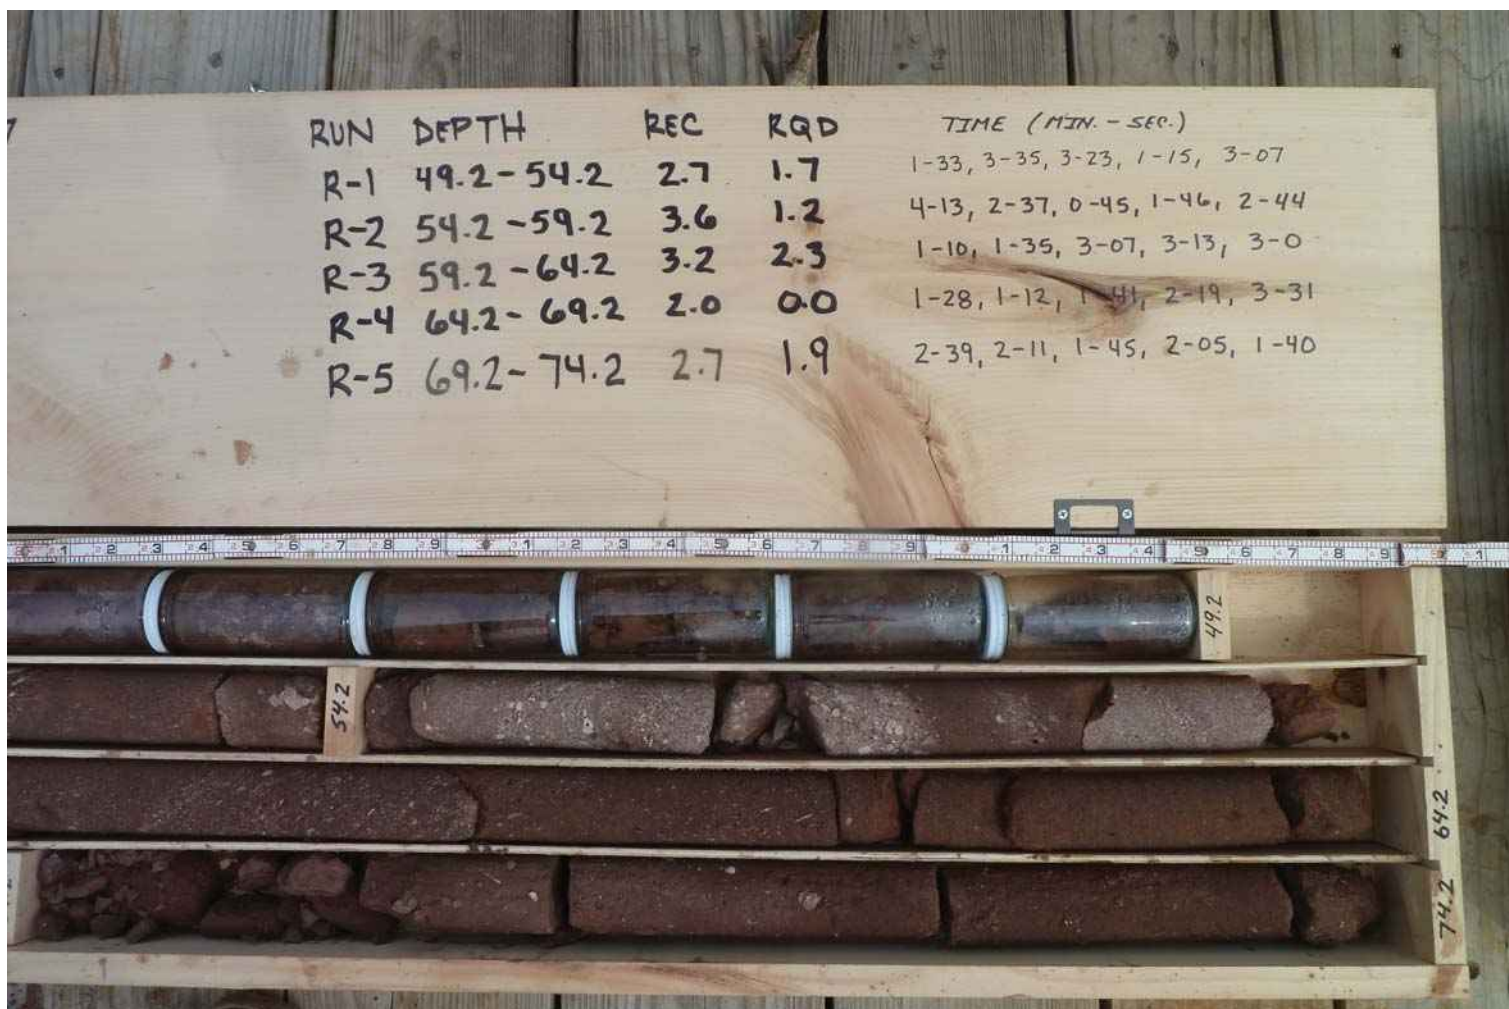 RUN DEPTH REC RQD TIME (MIN. - SEC.)
R-1 49.2-54.2 2.7 1.7 1-33, 3-35, 3-23, 1-15, 3-07
R-2 54.2-59.2 3.6 1.2 4-13, 2-37, 0-45, 1-46, 2-44
R-3 59.2-64.2 3.2 2.3 1-10, 1-35, 3-07, 3-13, 3-0
R-4 64.2-69.2 2.0 0.0 1-28, 1-12, 1-41, 2-19, 3-31
R-5 69.2-74.2 2.7 1.9 2-39, 2-11, 1-45, 2-05, 1-40
1 2 3 4 5 6 7 8 9 1 2 3 4 5 6 7 8 9 1 2 3 4 5 6 7 8 9 1
49.2
54.2
64.2
74.2